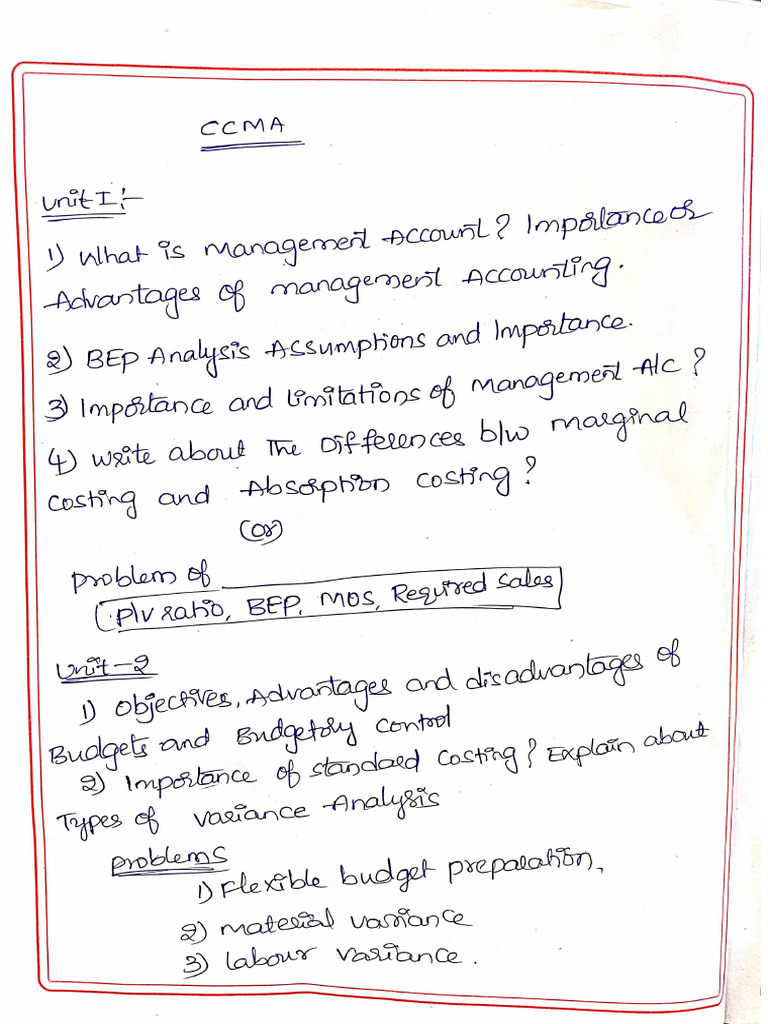 CCMA
Unit I :-
1) What is management Account? Importance or
Advantages of management Accounting.
2) BEP Analysis Assumptions and Importance.
3) Importance and Limitations of management A/c ?
4) write about The Differences b/w marginal
costing and Absorption costing?
(or)
problem of
P/v ratio, BEP, MOS, Required Sales
Unit-2
1) Objectives, Advantages and disadvantages of
Budgets and Budgetory control
2) Importance of standard costing? Explain about
Types of variance Analysis
problems
1) Flexible budget preparation,
2) material variance
3) labour variance.